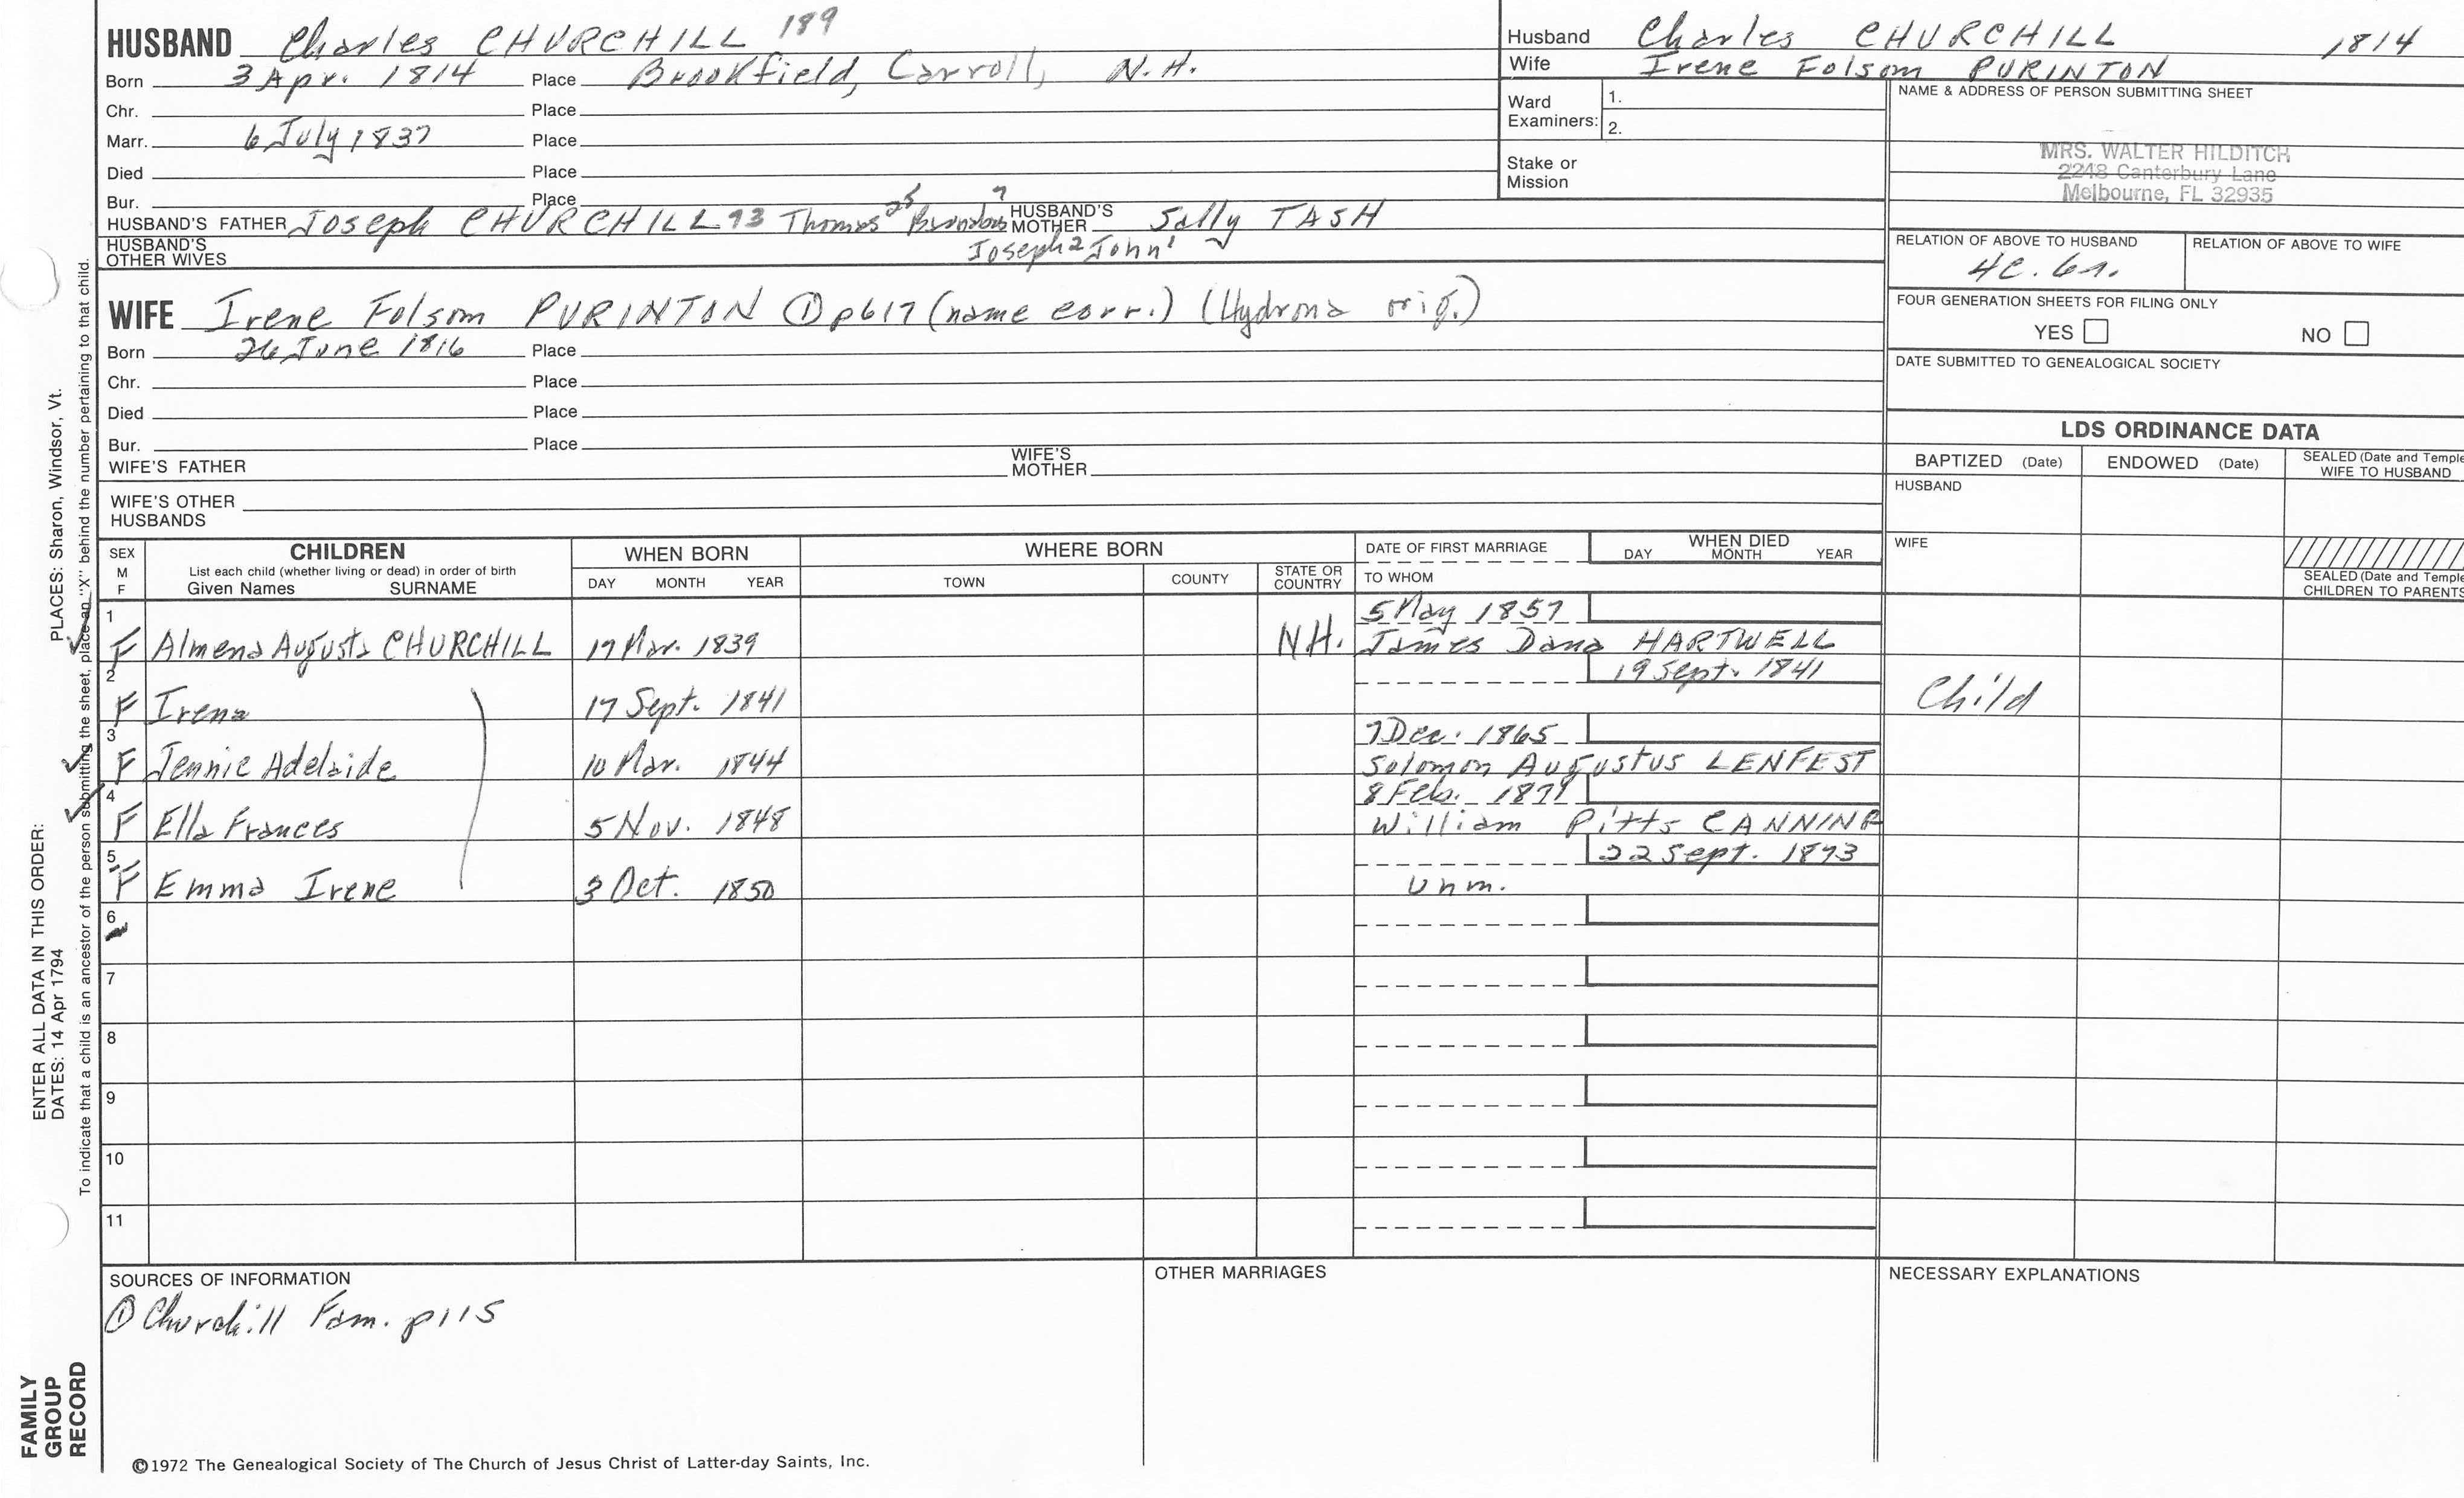 HUSBAND Charles CHURCHILL 189
Born 3 Apr. 1814 Place Brookfield, Carroll, N.H.
Chr. Place
Marr. 6 July 1837 Place
Died Place
Bur. Place
HUSBAND'S FATHER Joseph CHURCHILL 93 Thomas HUSBAND'S MOTHER Sally TASH
HUSBAND'S OTHER WIVES Joseph2 John1
Husband Charles CHURCHILL 1814
Wife Irene Folsom PURINTON
Ward Examiners: 1.
2.
Stake or Mission
NAME & ADDRESS OF PERSON SUBMITTING SHEET
MRS. WALTER HILDITCH
2248 Canterbury Lane
Melbourne, FL 32935
RELATION OF ABOVE TO HUSBAND RELATION OF ABOVE TO WIFE
4c.
FOUR GENERATION SHEETS FOR FILING ONLY
YES NO
DATE SUBMITTED TO GENEALOGICAL SOCIETY
WIFE Irene Folsom PURINTON ① p617 (name corr.) (Hydrona orig.)
Born 26 June 1816 Place
Chr. Place
Died Place
Bur. Place
WIFE'S FATHER WIFE'S MOTHER
WIFE'S OTHER HUSBANDS
LDS ORDINANCE DATA
BAPTIZED (Date) ENDOWED (Date) SEALED (Date and Temple WIFE TO HUSBAND
HUSBAND
WIFE
SEALED (Date and Temple CHILDREN TO PARENTS
SEX M F CHILDREN
List each child (whether living or dead) in order of birth
Given Names SURNAME
WHEN BORN
DAY MONTH YEAR
WHERE BORN
TOWN COUNTY STATE OR COUNTRY
DATE OF FIRST MARRIAGE
TO WHOM
WHEN DIED
DAY MONTH YEAR
1 5 May 1857
F Almena Augusta CHURCHILL 17 Mar. 1839 NH. James Dana HARTWELL
2 19 Sept. 1841
F Irena 17 Sept. 1841 Child
3 7 Dec. 1865
F Jennie Adelaide 10 Mar. 1844 Solomon Augustus LENFEST
4 8 Feb. 1871
F Ella Frances 5 Nov. 1848 William Pitts CANNING
5 22 Sept. 1873
F Emma Irene 3 Oct. 1850 Unm.
6
7
8
9
10
11
SOURCES OF INFORMATION
① Churchill Fam. p115
OTHER MARRIAGES
NECESSARY EXPLANATIONS
©1972 The Genealogical Society of The Church of Jesus Christ of Latter-day Saints, Inc.
FAMILY
GROUP
RECORD
ENTER ALL DATA IN THIS ORDER:
DATES: 14 Apr 1794
PLACES: Sharon, Windsor, Vt.
To indicate that a child is an ancestor of the person submitting the sheet, place an "X" behind the number pertaining to that child.